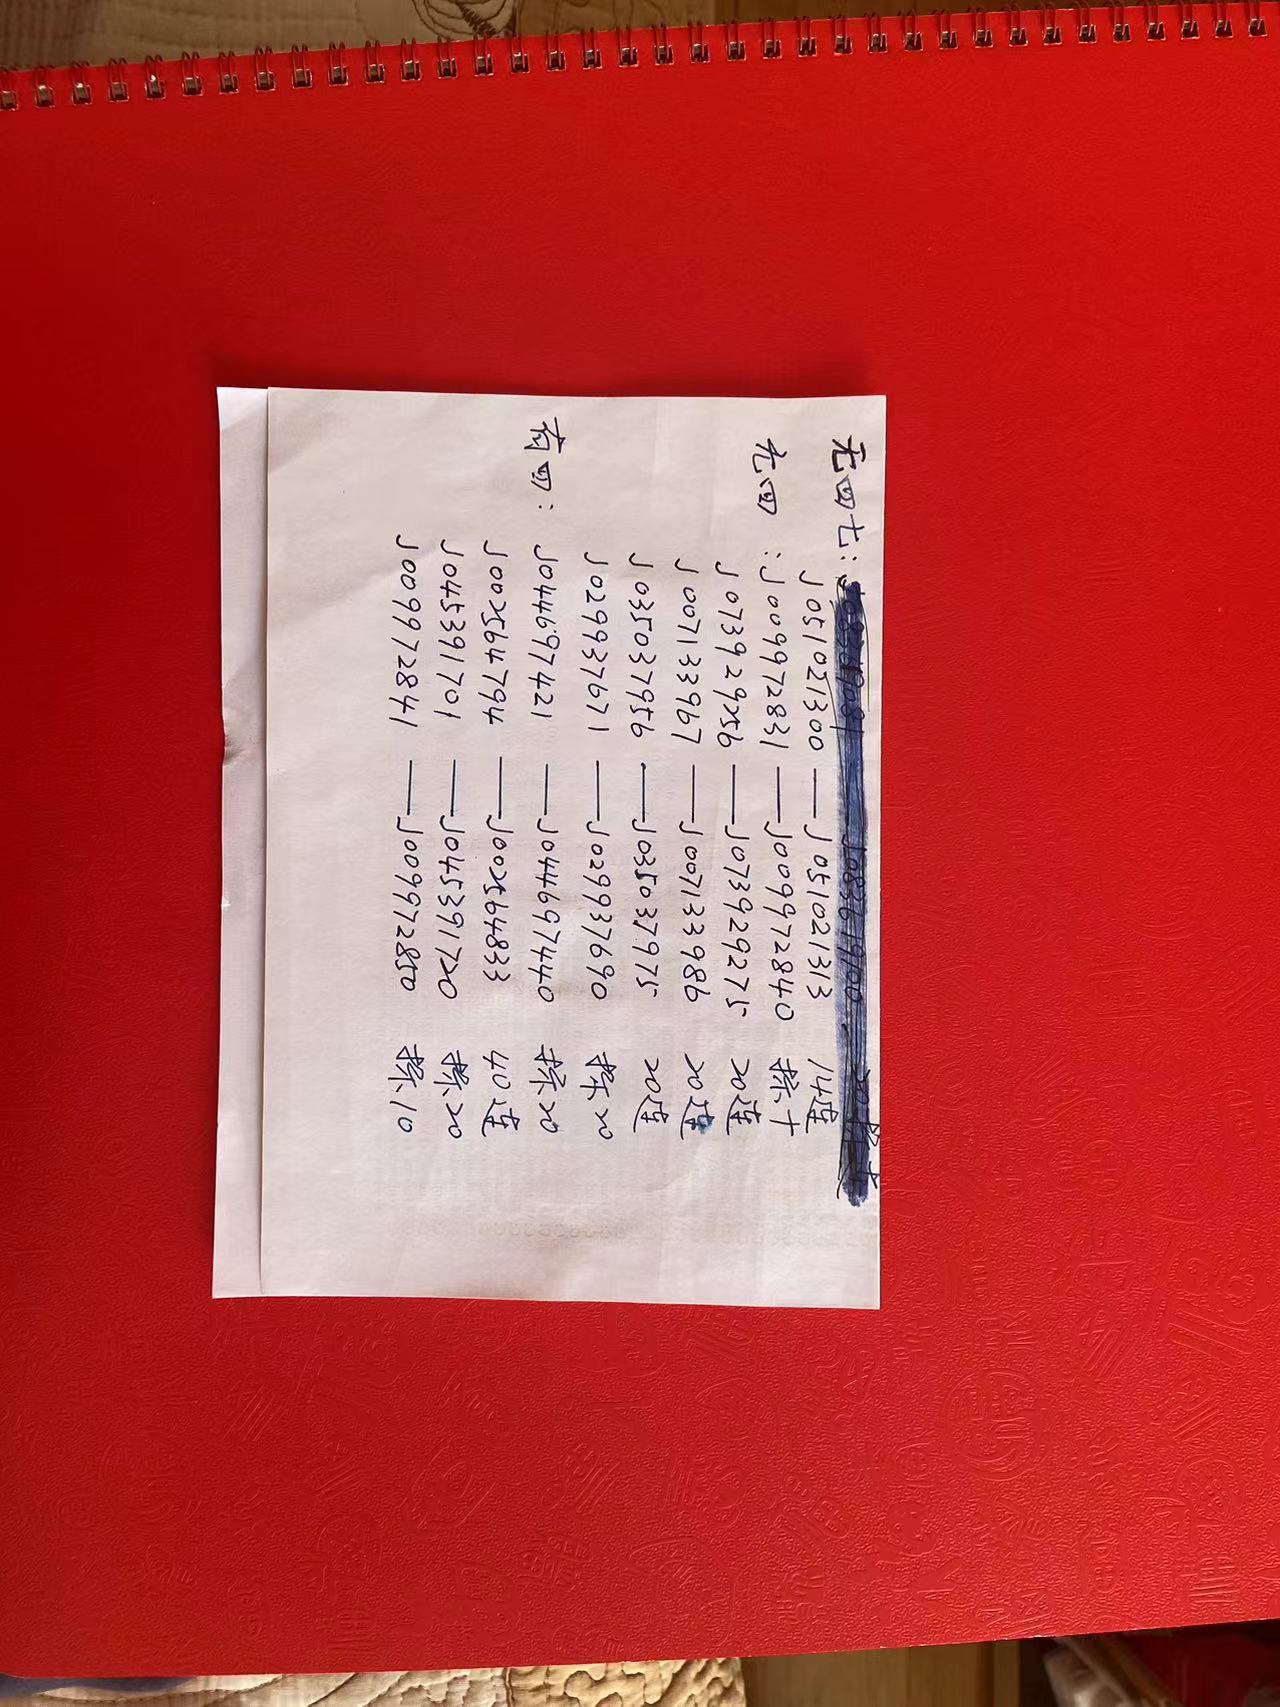 无四七:
J051021300 — J051021313 14连
无四:J009972831 — J009972840 标十
J073929256 — J073929275 20连
J007133967 — J007133986 20连
J035037956 — J035037975 20连
J029937671 — J029937690 标20
有四:J044697421 — J044697440 标20
J002564794 — J002564833 40连
J045391701 — J045391720 标20
J009972841 — J009972850 标10